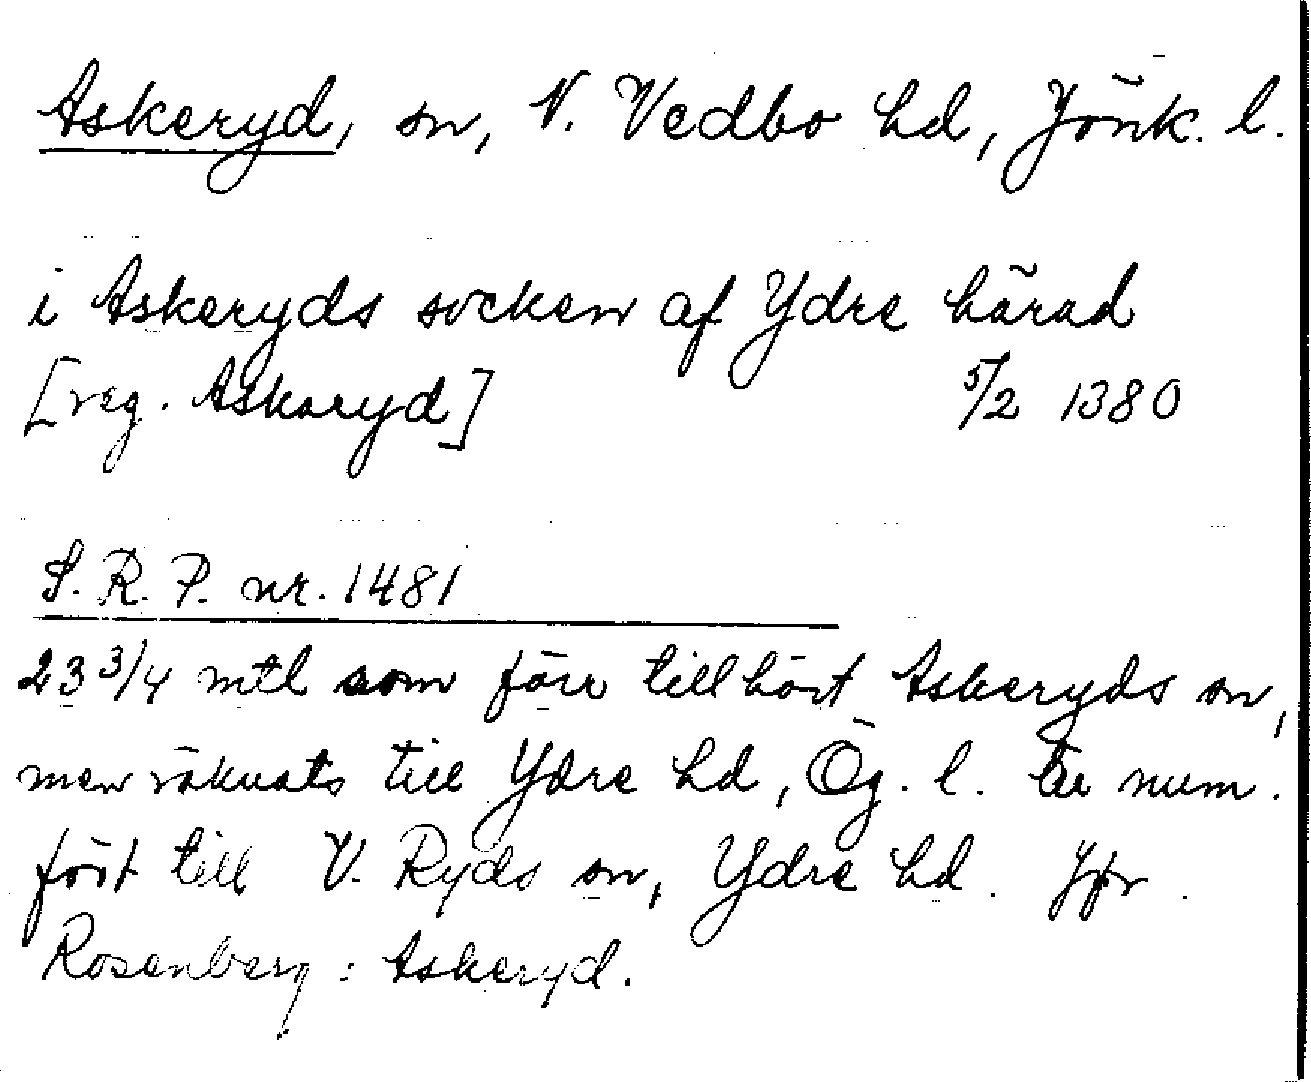 Askeryd, sn, N. Vedbo hd, Jönk. l.
i Askeryds socken af Ydre härad
[reg. Askaryd] 5/2 1380
S. R. P. nr. 1481
23 3/4 mtl som förr tillhört Askeryds sn,
men räknats till Ydre hd, Ög. l. är num.
fört till V. Ryds sn, Ydre hd. Jfr
Rosenberg: Askeryd.